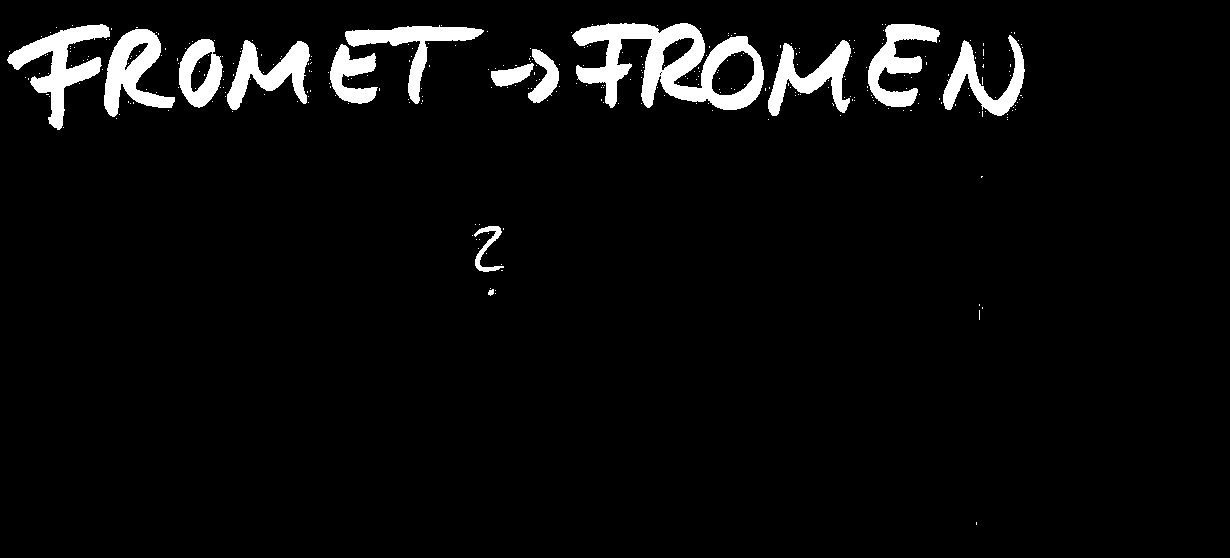 FROMET → FROMEN
?